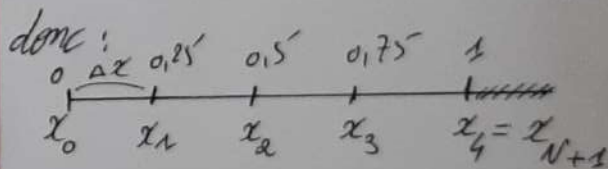 donc :
0 Δx 0,25 0,5 0,75 1
x₀ x₁ x₂ x₃ x₄ = x_{N+1}